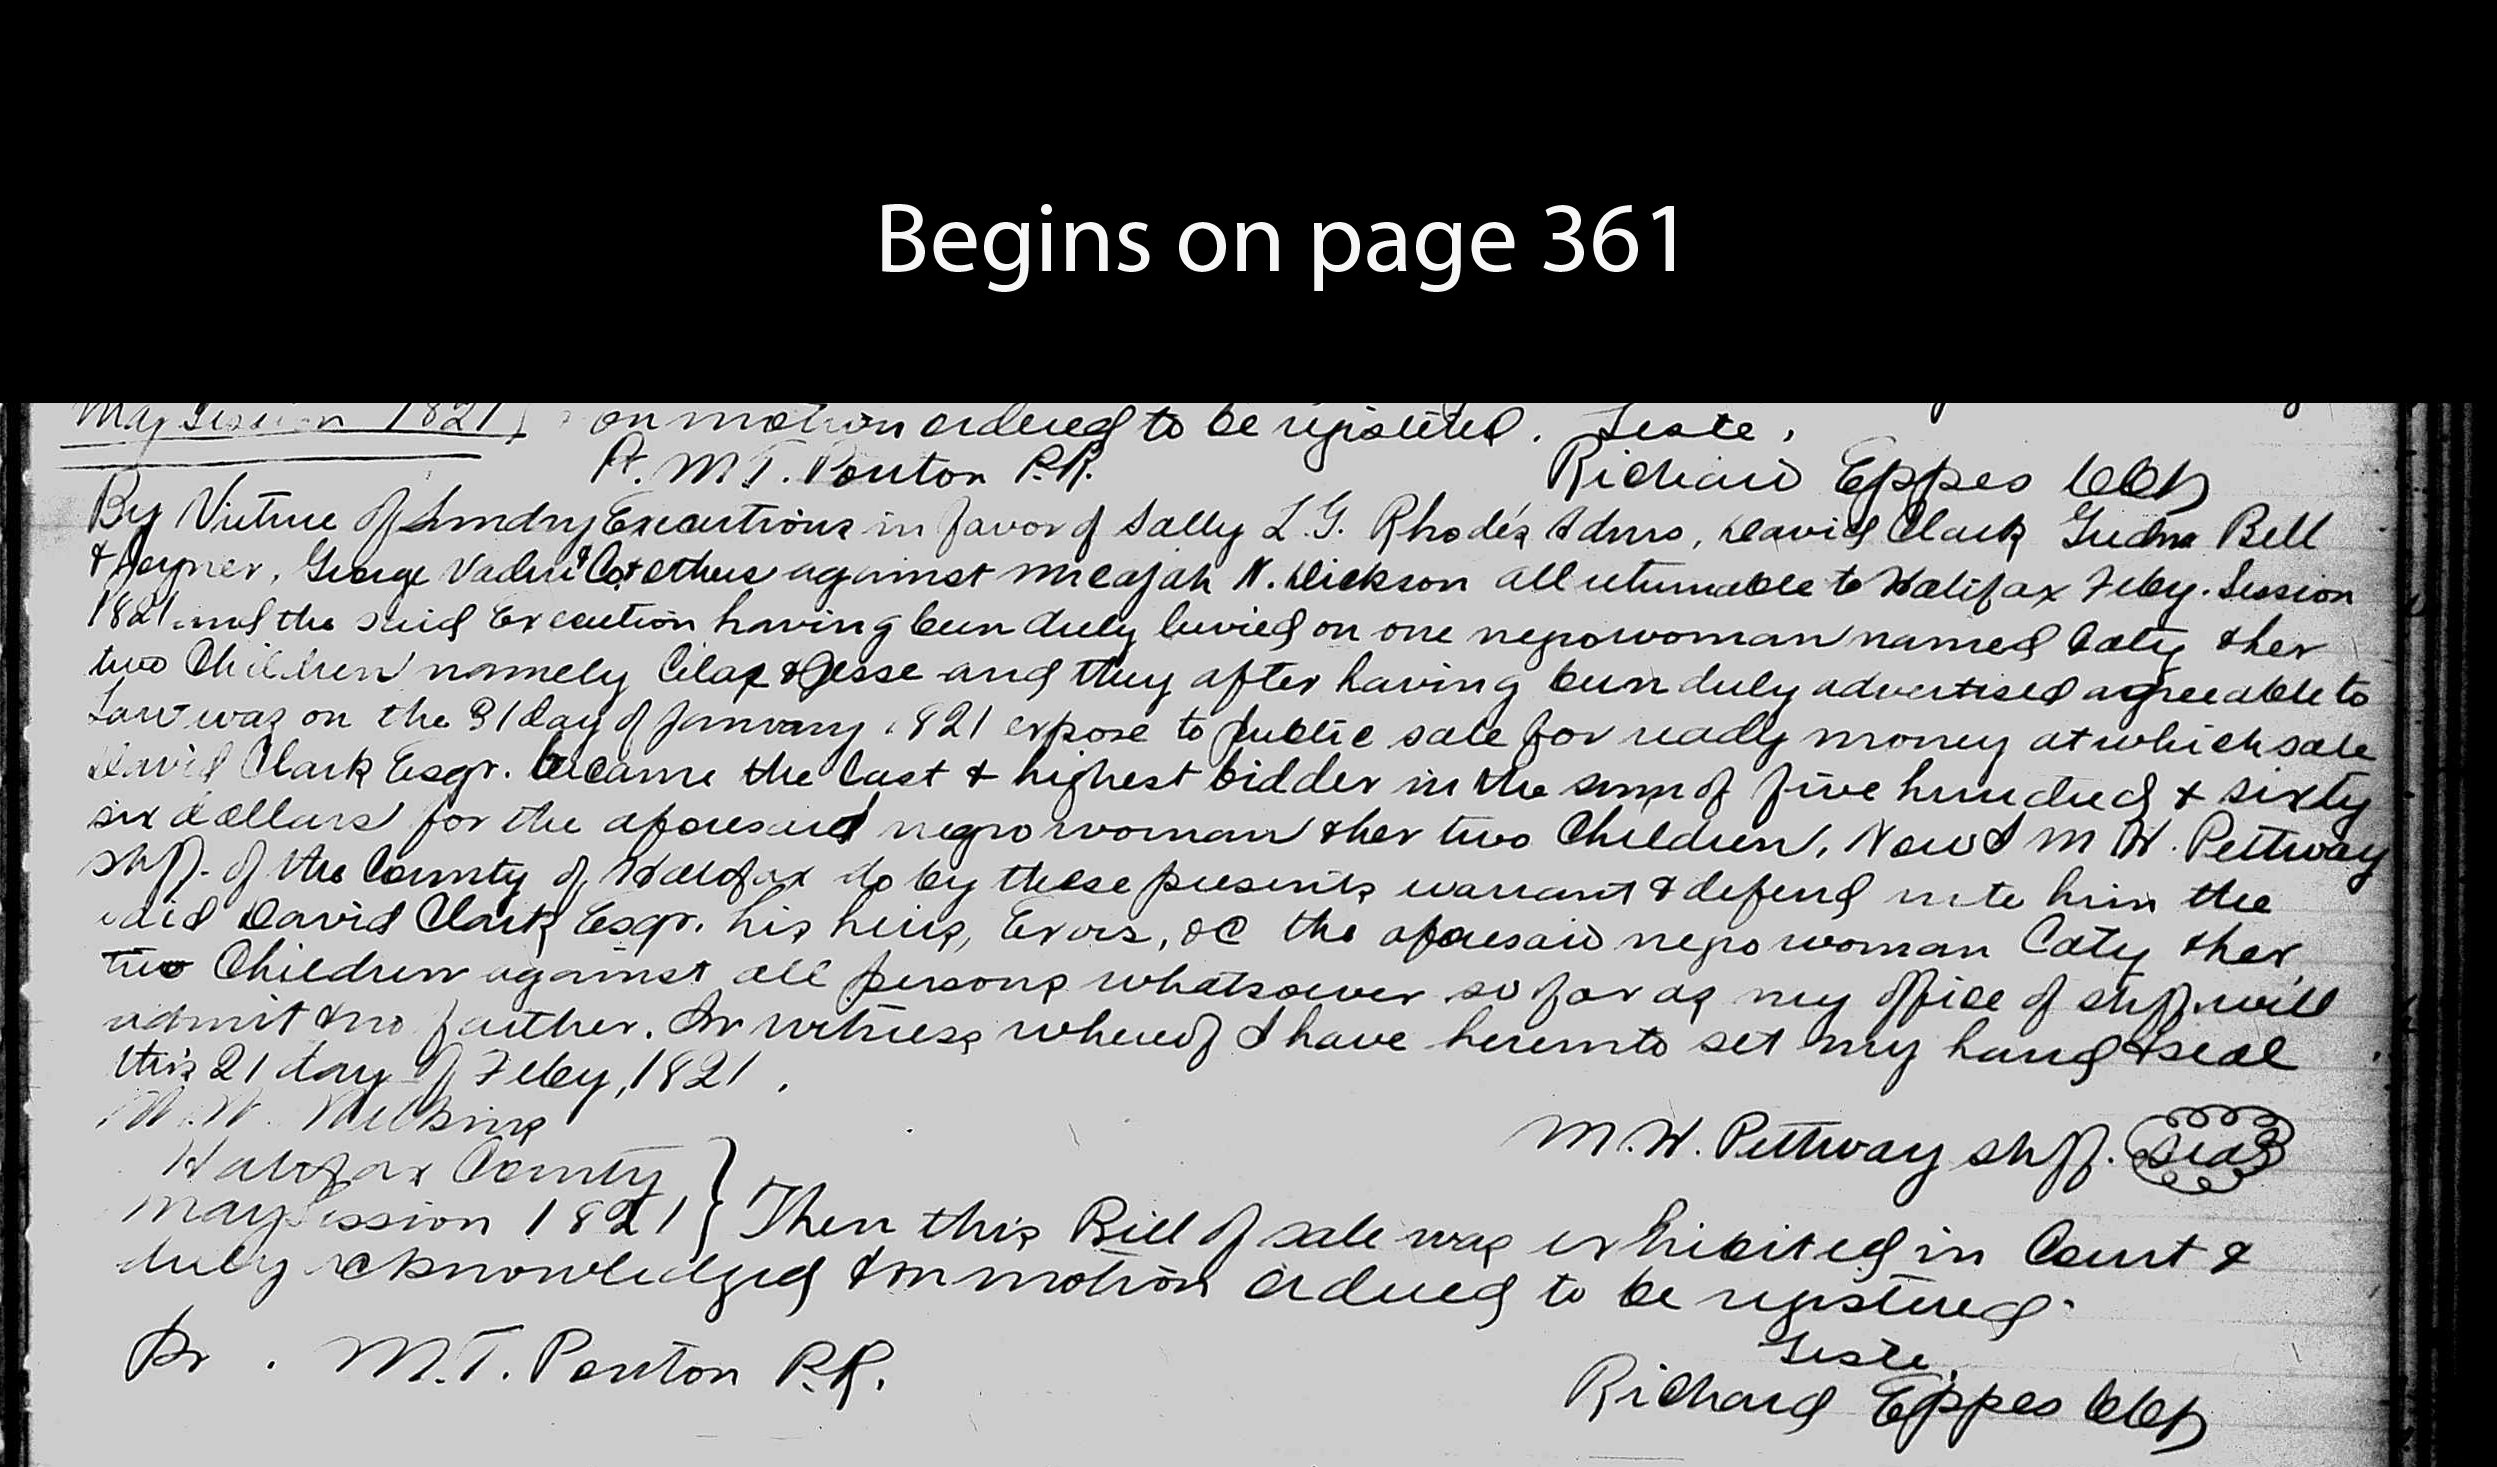 Begins on page 361
May Session 1821 } on motion ordered to be registered. Teste,
Pr. M.T. Ponton P.R. Richard Eppes CCC
By Virtue of Sundry Executions in favor of Sally L.G. Rhodes Admrs, David Clark Bell
& Joyner, George & Co. & others against Micajah N. Dickson all returnable to Halifax Feby. Session
1821 and the said Execution having been duly levied on one negro woman named Caty & her
two Children namely & Jesse and they after having been duly advertised agreeable to
Law was on the 31 day of January 1821 expose to public sale for ready money at which sale
David Clark Esqr. became the last & highest bidder in the sum of five hundred & sixty
six dollars for the aforesaid negro woman & her two Children, Now I M W. Pettway
Shff. of the County of Halifax do by these presents warrant & defend unto him the
said David Clark Esqr. his heirs, Exors, &C the aforesaid negro woman Caty & her
two Children against all persons whatsoever so far as my office of shff. will
admit & no farther. In witness whereof I have hereunto set my hand & seal
this 21 day of Feby, 1821.
M. W. Pettway Shff. Seal
Halifax County }
May Session 1821 } Then this Bill of sale was exhibited in Court &
duly acknowledged & on motion ordered to be registered.
Teste,
Pr. M.T. Ponton P.R. Richard Eppes CCC